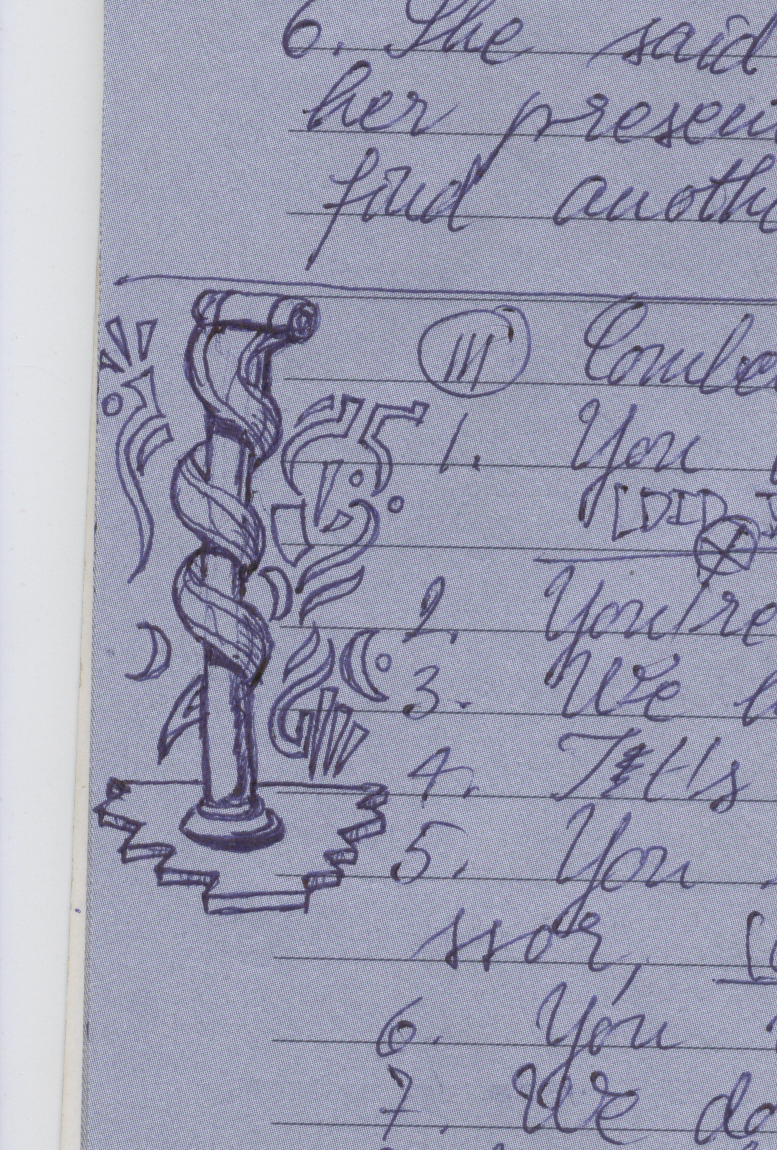 6. She said
her presen
find anothe
III Combo
1. You
[DID I
2. You're
3. We
4. It's
5. You
ssor, [
6. You
7. We do